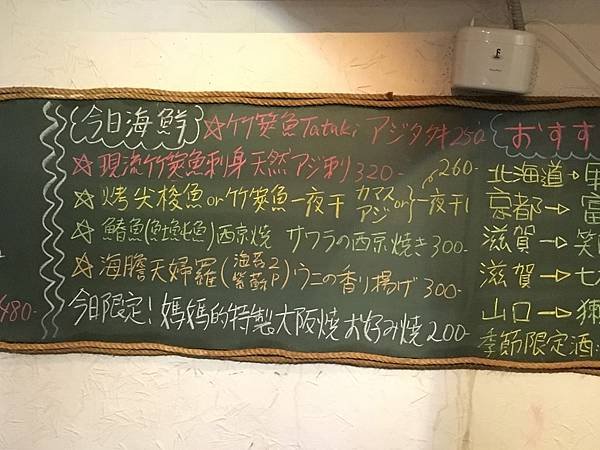 今日海鮮 ☆竹筴魚Tataki アジタタキ 250
☆現流竹筴魚刺身 天然アジ刺 320-
☆烤尖梭魚or竹筴魚一夜干 カマスorアジ}一夜干し 260-
☆鰆魚(魠魚)西京燒 サワラの西京焼き 300-
☆海膽天婦羅(海苔2 紫蘇1)ウニの香り揚げ 300-
今日限定!媽媽的特製大阪燒 お好み焼 200-
480-
おすす
北海道→
京都→富
滋賀→笑
滋賀→七
山口→獺
季節限定酒